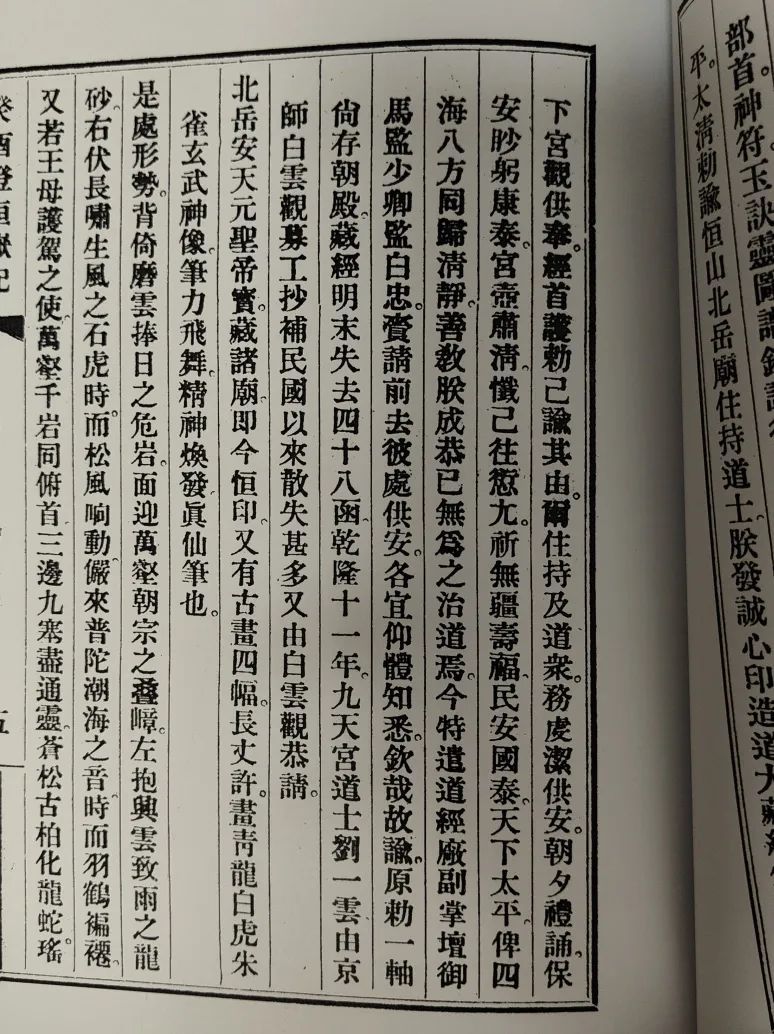 部首神符玉訣靈圖譜錄
平太清勅諭恒山北岳廟住持道士朕發誠心印造道大藏
下宮觀供奉。經首護勅己諭其由。爾住持及道衆。務虔潔供安。朝夕禮誦。保
安眇躬康泰。宮壼肅清。懺己往愆尤。祈無疆壽福。民安國泰。天下太平。俾四
海八方同歸清靜。善敎朕成恭已無爲之治道焉。今特遣道經廠副掌壇御
馬監少卿監白忠。賫請前去彼處供安。各宜仰體知悉。欽哉故諭。原勅一軸
尙存朝殿。藏經明末失去四十八函。乾隆十一年。九天宮道士劉一雲由京
師白雲觀募工抄補民國以來散失甚多又由白雲觀恭請。
北岳安天元聖帝寳。藏諸廟。即今恒印又有古畫四幅。長丈許。畫靑龍白虎朱
雀玄武神像。筆力飛舞。精神煥發。眞仙筆也。
是處形勢。背倚磨雲捧日之危岩。面迎萬壑朝宗之疊嶂。左抱興雲致雨之龍
砂。右伏長嘯生風之石虎時。而松風响動。儼來普陀潮海之音。時而羽鶴褊褼。
又若王母護駕之使。萬壑千岩同俯首三邊九塞盡通靈。蒼松古柏化龍蛇。瑤
癸酉證恒嶽記
五